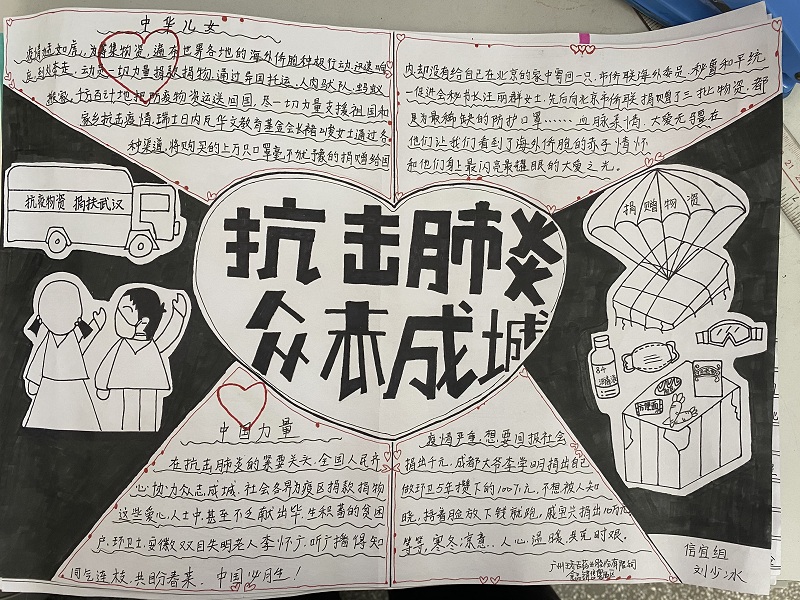 中华儿女
疫情猛如虎，为募集物资，遍布世界各地的海外侨胞积极行动，迅速响
应，到处奔走，动员一切力量捐款捐物，通过异国托运、人肉驮队、蚂蚁
搬家，千方百计地把防疫物资运送回国，尽一切力量支援祖国和
家乡抗击疫情，瑞士日内瓦华文教育基金会长 女士通过各
种渠道，将购买的上万只口罩毫不犹豫的捐赠给国
内，却没有给自己在北京的家中寄回一只，市侨联海外委员，秘鲁和平统
一促进会秘书长汪丽群女士，先后向北京市侨联捐赠了三批物资，都
是为最稀缺的防护口罩……血脉亲情，大爱无疆在
他们让我们看到了海外侨胞的赤子情怀
和他们身上最闪亮最耀眼的大爱之光。
抗疫物资 捐扶武汉
捐赠物资
抗击肺炎
众志成城
84
消毒液
中国力量
在抗击肺炎的紧要关头，全国人民齐
心协力众志成城，社会各界为疫区捐款捐物
这些爱心人士中甚至不乏献出毕生积蓄的贫困
户，环卫士，安徽双目失明老人李怀广，听广播得知
疫情严重，想要回报社会
捐出千元，成都大爷李学明捐出自己
做环卫5年攒下的100万元，不想被人知
晓，捂着脸放下钱就跑，戚寅兴捐出10万元
等等，寒冬凉意，人心温暖，共克时艰。
同气连枝，共盼春来，中国必胜！
信宜组
刘少冰